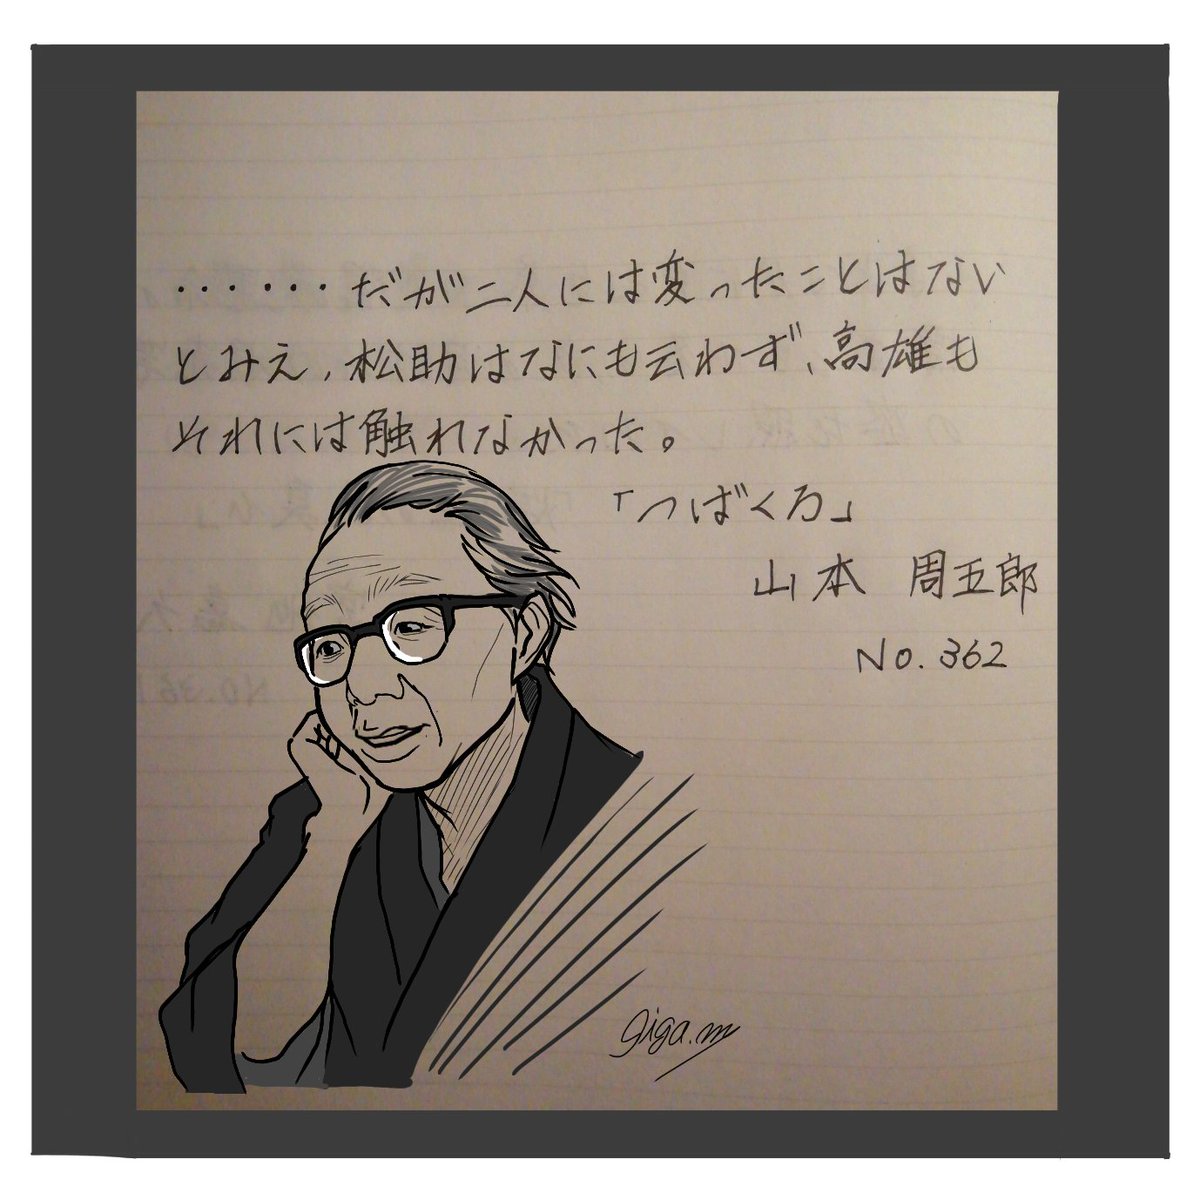 ・・・・・・だが二人には変ったことはない
とみえ、松助はなにも云わず、高雄も
それには触れなかった。
「つばくろ」
山本 周五郎
No.362
giga.m